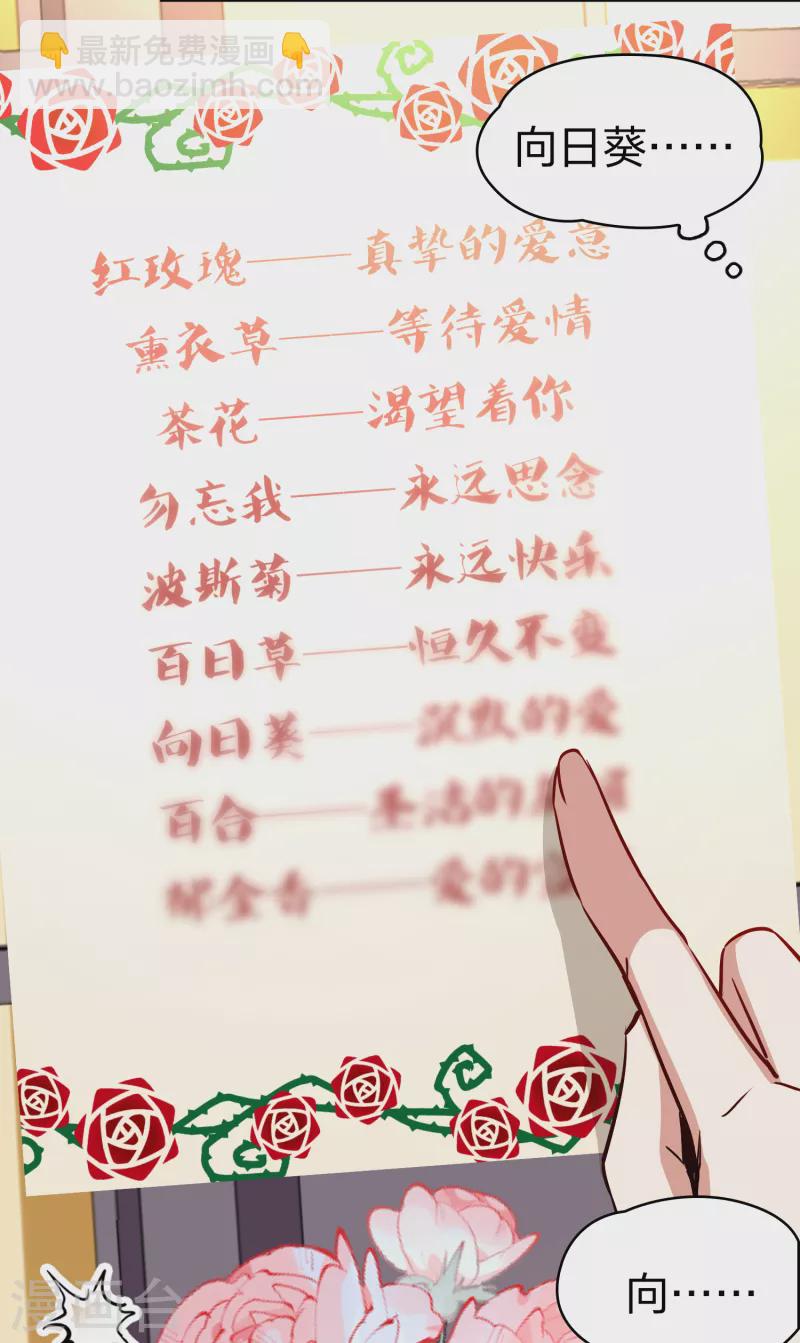 👇最新免费漫画👇
www.baozimh.com
向日葵……
红玫瑰——真挚的爱意
薰衣草——等待爱情
茶花——渴望着你
勿忘我——永远思念
波斯菊——永远快乐
百日草——恒久不变
向日葵——沉默的爱
百合——圣洁的
郁金香——爱的
向……
漫画台